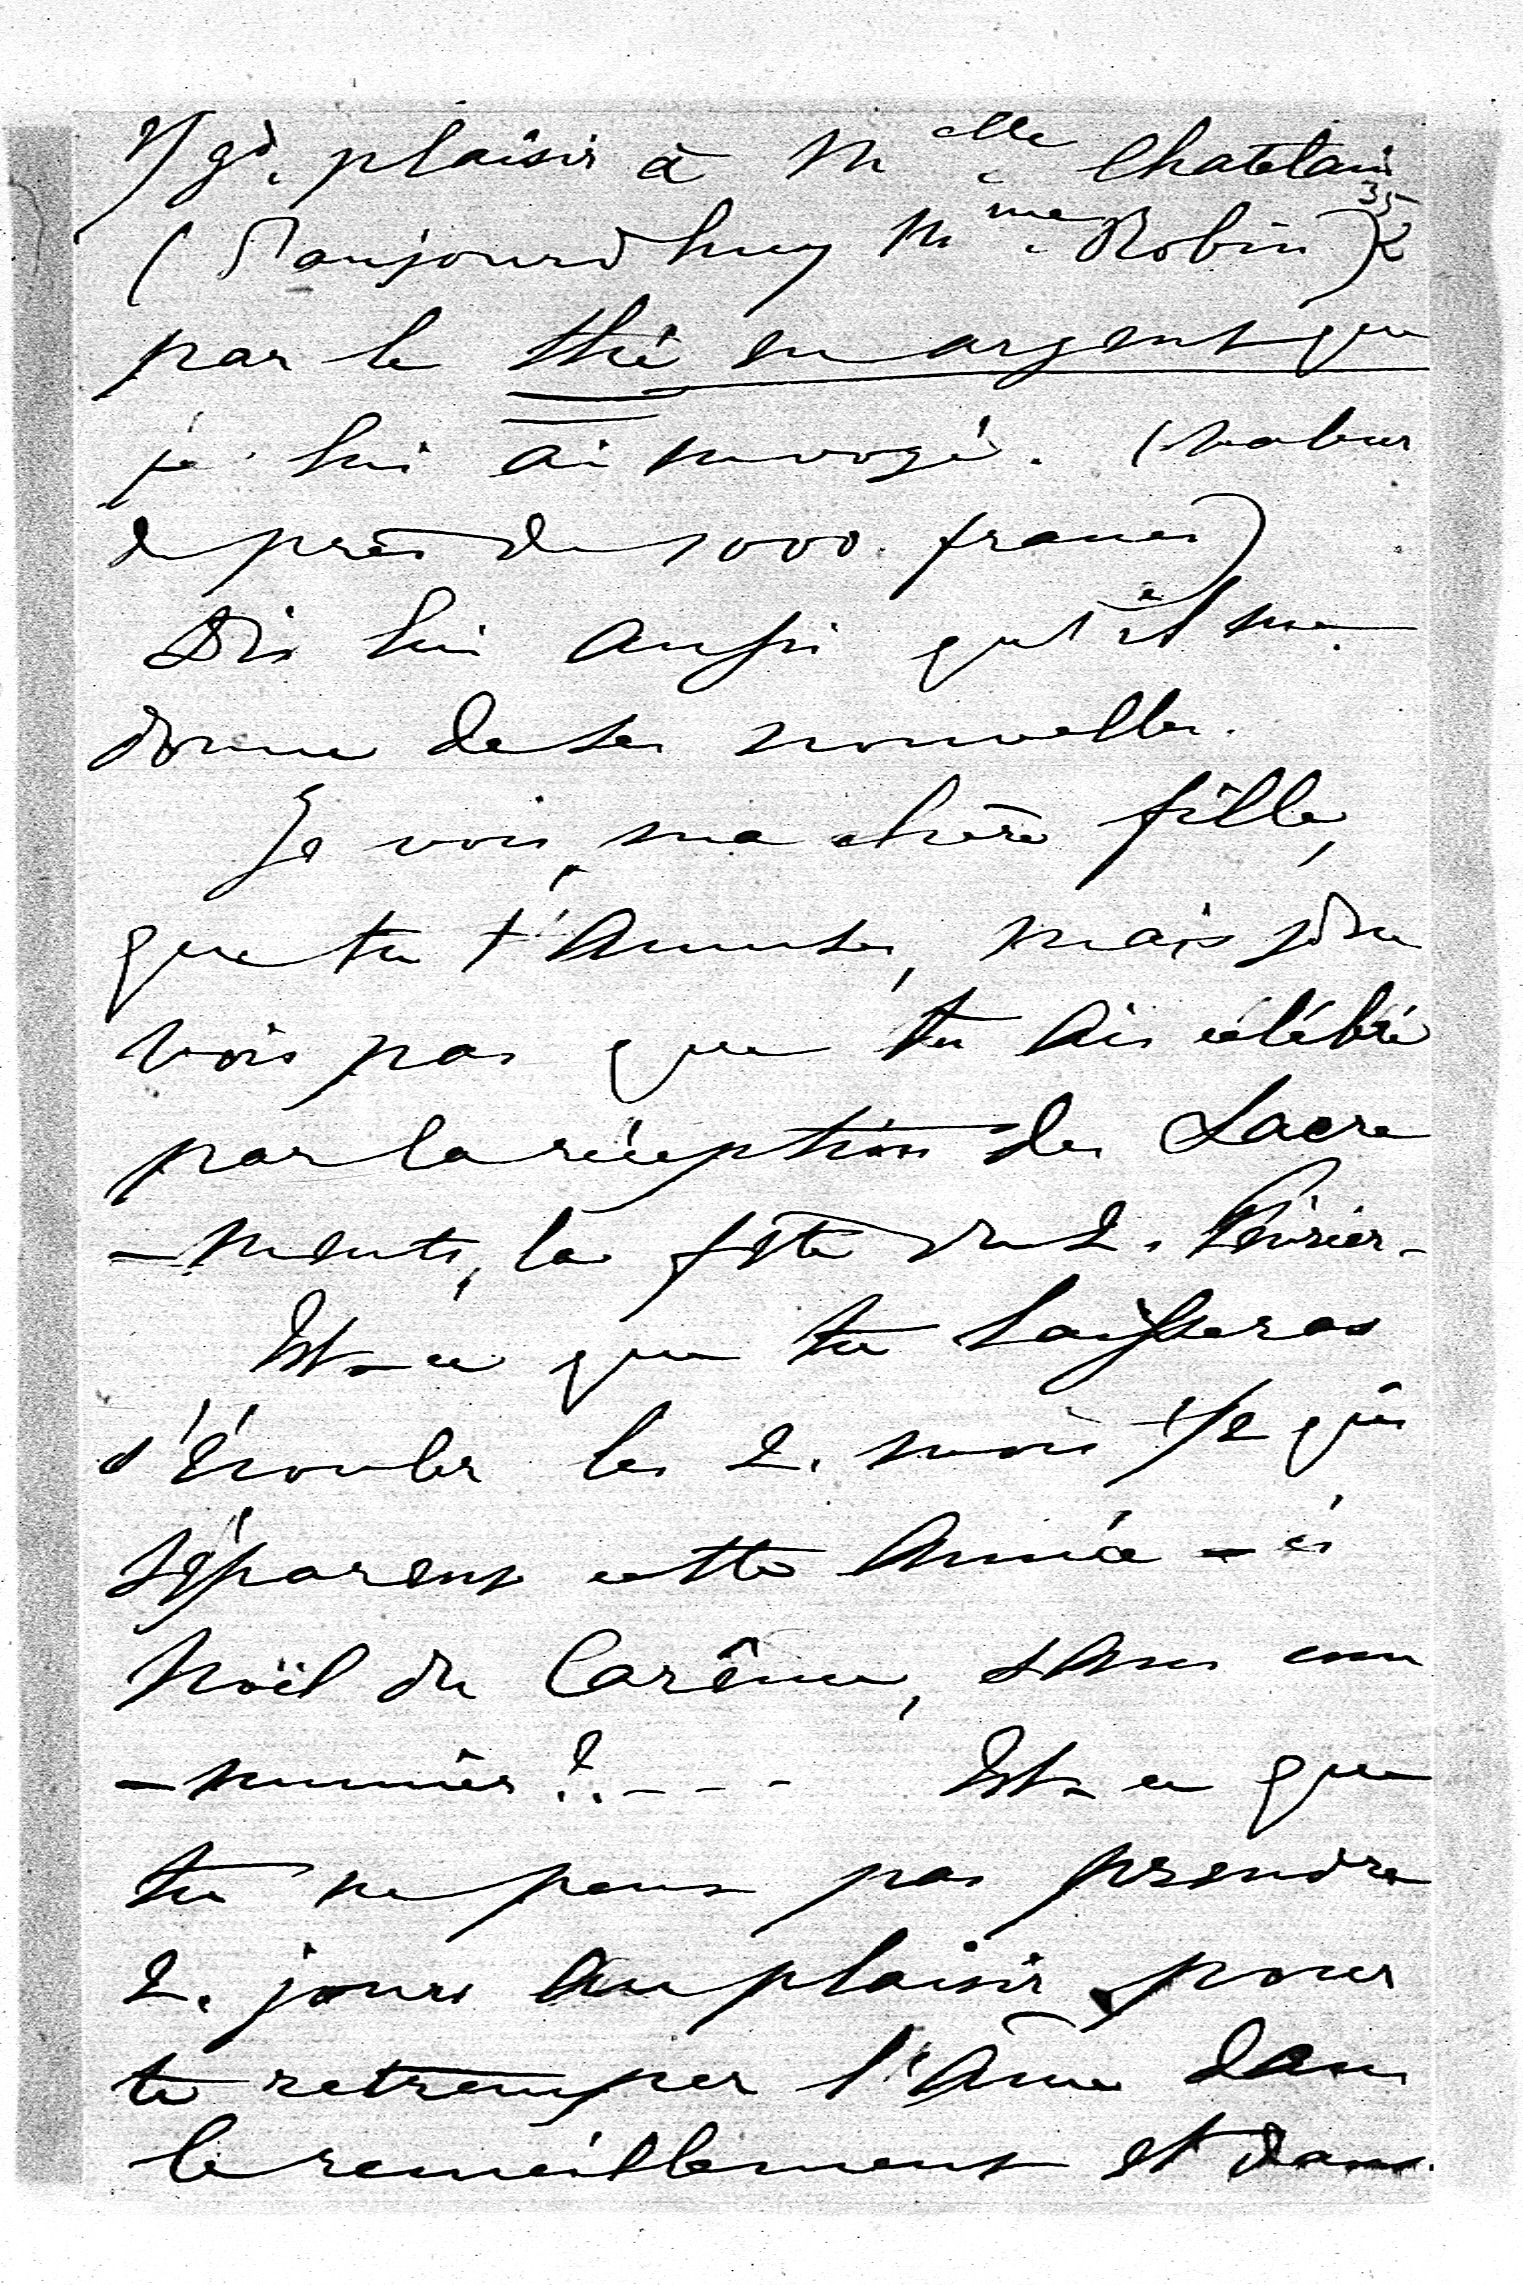 gd. plaisir à Melle Chatelain
( d'aujourd'huy Mme Robin )
35
par le thé en argent que
je lui ai envoyé. (valeur
de près de 1000. francs)
Dis lui aussi qu'il me
donne de ses nouvelles.
Je vois, ma chère fille,
que tu t'amuses, mais je ne
vois pas que tu ais célébré
par la réception des Sacre
-ments, la fête du 2. février.
Est-ce que tu laisseras
s'écouler les 2. mois 1/2 qui
séparent cette année-ci
Noël du Carême, sans com
-munier?. - - - Est-ce que
tu ne peux pas prendre
2. jours au plaisir, pour
te retremper l'âme dans
le recueillement et dans